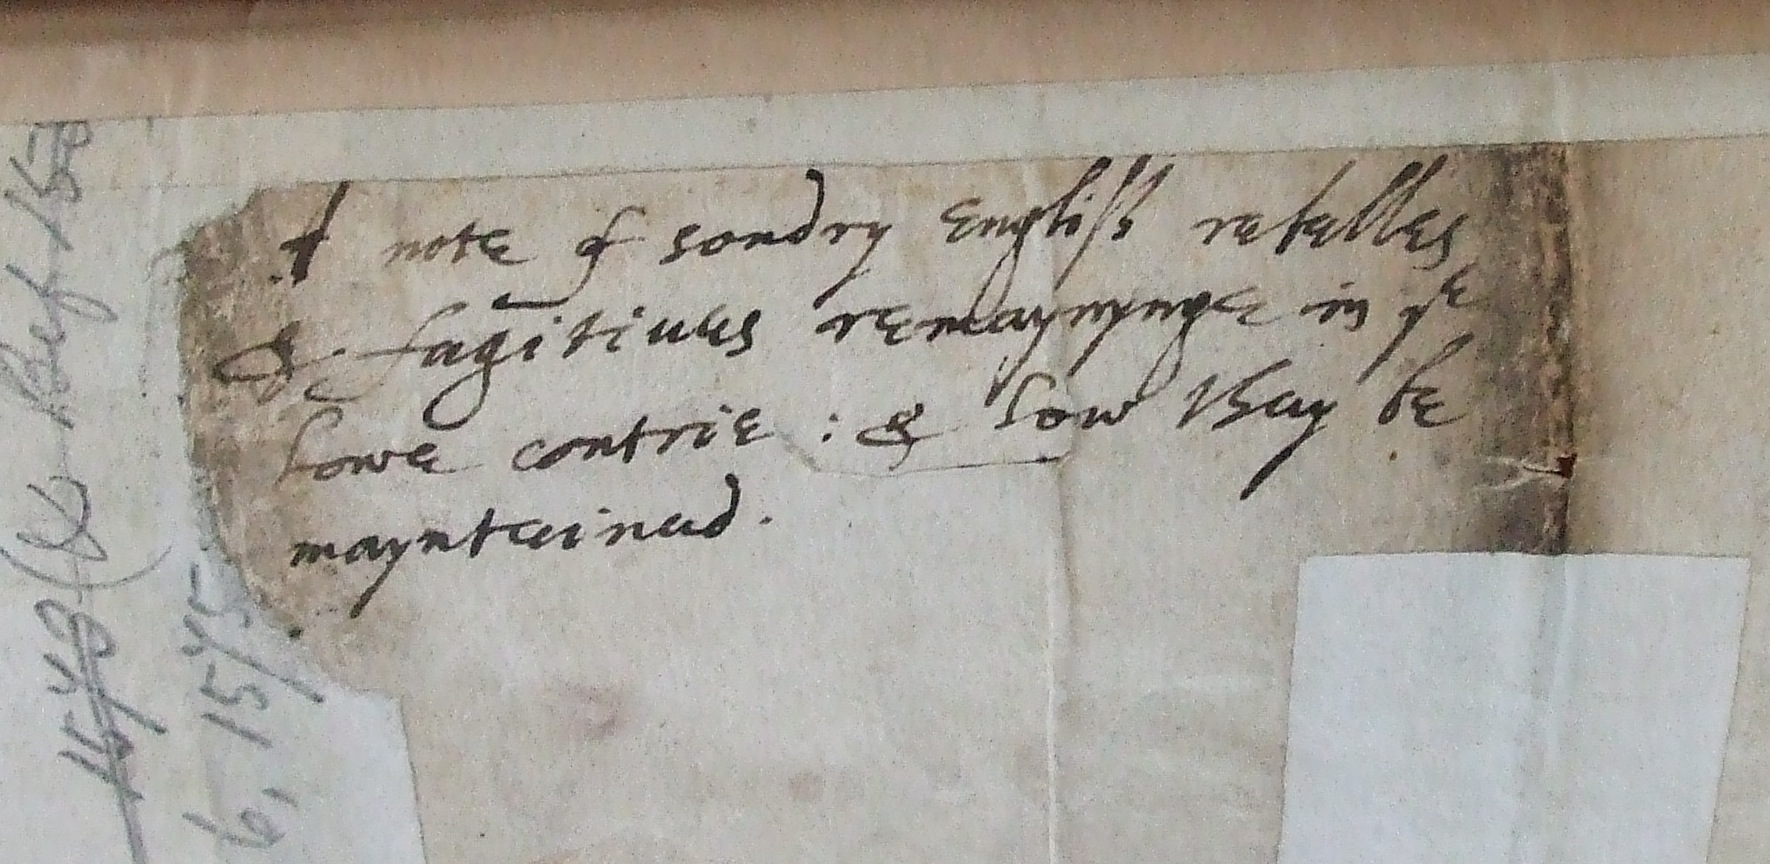 A note of sondry Englissh rebelles
& fugitiues remaynynge in ye
lowe contrie : & how thay be
maynteined.
6, 1575